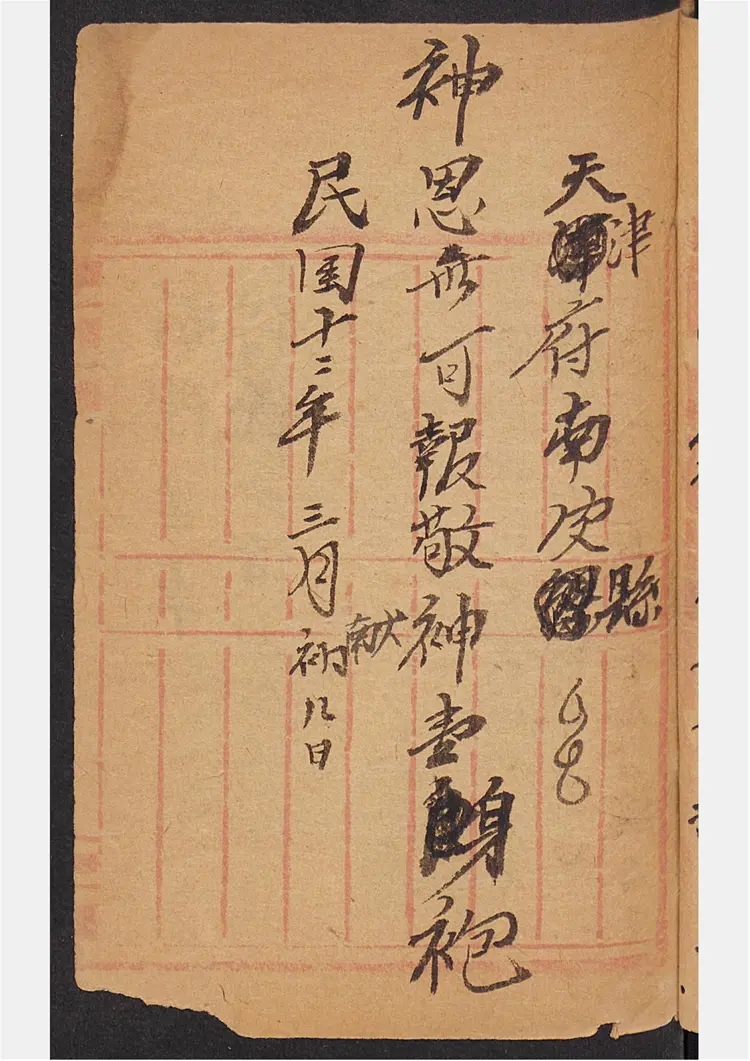 天津府南皮縣
神恩無可報敬神壹身袍
献
民国十二年三月初九日